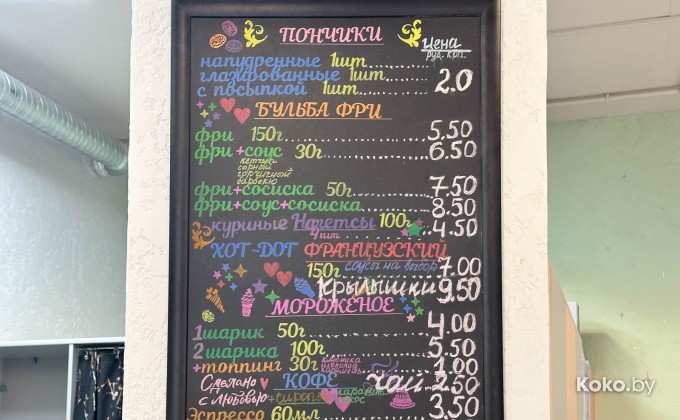 ПОНЧИКИ
Цена
руб. коп.
напудренные 1шт
глазированные 1шт
с посыпкой 1шт. 2.0
БУЛЬБА ФРИ
фри 150г 5.50
фри+соус 30г 6.50
кетчуп
сырный
горчичный
барбекю
фри+сосиска 50г 7.50
фри+соус+сосиска 8.50
куриные Нагетсы 100г 4.50
4шт
ХОТ-ДОГ ФРАНЦУЗСКИЙ
150г соусы на выбор 7.00
Крылышки 9.50
МОРОЖЕНОЕ
1шарик 50г 4.00
2шарика 100г 5.50
+топпинг 30г 1.00
клубника
шоколад
карамель
Сделано
с Любовью
КОФЕ
+сироп
Чай
Эспрессо 60мл 3.50
Koko.by